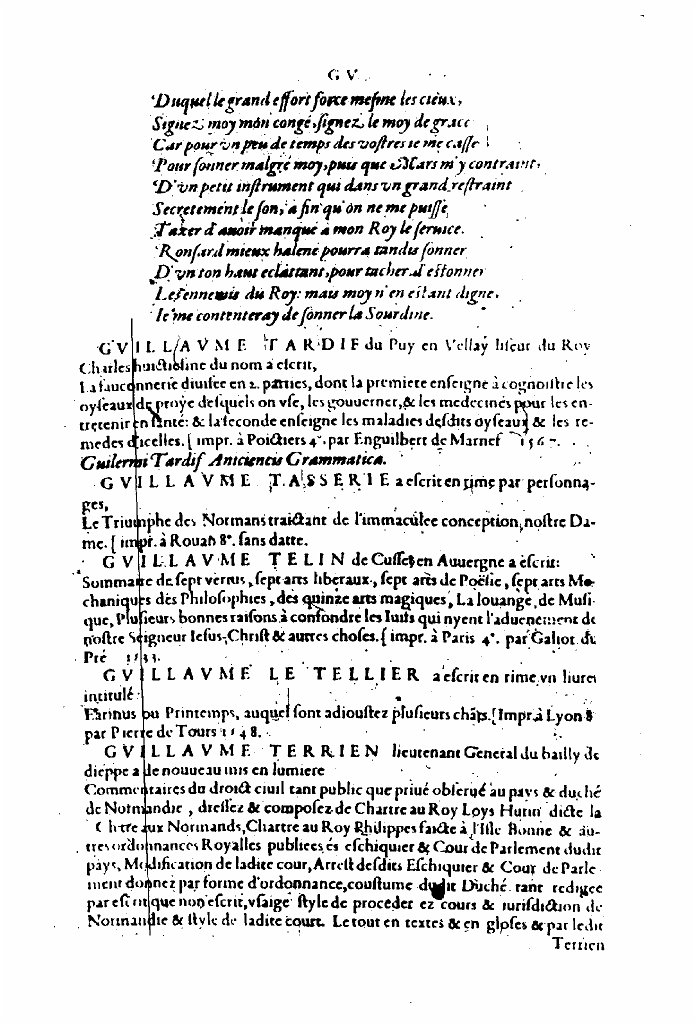 G V
Duquel le grand effort force mesme les cieux,
Signez moy mon congé, signez le moy de grace
Car pour vn peu de temps des vostres ie me casse
Pour sonner malgré moy, puis que Mars m'y contraint,
D'vn petit instrument qui dans vn grand restraint
Secretement le son, a fin qu'on ne me puisse
Taxer d'auoir manqué a mon Roy le seruice.
Ronsard mieux halené pourra tandis sonner
D'vn ton haut eclattant, pour tacher d'estonner
Les ennemis du Roy: mais moy n'en estant digne,
Ie me contenteray de sonner la Sourdine.
GVILLAVME TARDIF du Puy en Vellay liseur du Roy
Charles huictiesme du nom a escrit,
La fauconnerie diuisee en 2. parties, dont la premiere enseigne à cognoistre les
oyseaux de proye desquels on vse, les gouuerner, & les medecines pour les en-
tretenir en santé: & la seconde enseigne les maladies desdits oyseaux & les re-
medes d'icelles. [impr. à Poictiers 4°. par Enguilbert de Marnef 1567.
Guilermi Tardif Aniciensis Grammatica.
GVILLAVME TASSERIE a escrit en rime par personna-
ges,
Le Triumphe des Normans traictant de l'immaculee conception, nostre Da-
me. [impr. à Rouan 8°. sans datte.
GVILLAVME TELIN de Cusset en Auuergne a escrit:
Sommaire de sept vertus, sept arts liberaux, sept arts de Poësie, sept arts Me-
chaniques des Philosophies, des quinze arts magiques, La louange de Musi-
que, Plusieurs bonnes raisons à confondre les Iuifs qui nyent l'aduenement de
nostre Seigneur Iesus-Christ & autres choses. [impr. à Paris 4°. par Galiot du
Pré 1533.
GVILLAVME LE TELLIER a escrit en rime vn liuret
intitulé
Earinus ou Printemps, auquel sont adioustez plusieurs chãts. [Impr. à Lyon 8
par Pierre de Tours 1548.
GVILLAVME TERRIEN lieutenant General du bailly de
dieppe a de nouueau mis en lumiere
Commentaires du droict ciuil tant public que priué obserué au pays & duché
de Normandie, dressez & composez de Chartre au Roy Loys Hutin dicte la
Chtre aux Normands, Chartre au Roy Philippes faicte à l'Isle Bonne & au-
tres ordonnances Royalles publiees és eschiquier & Cour de Parlement dudit
pays, Modification de ladite cour, Arrest desdits Eschiquier & Cour de Parle
ment donnez par forme d'ordonnance, coustume dudit Duché tant redigee
par escrit que non escrit, vsaige stylede proceder ez cours & iurisdiction de
Normandie & style de ladite court. Le tout en textes & en gloses & par ledit
Terrien